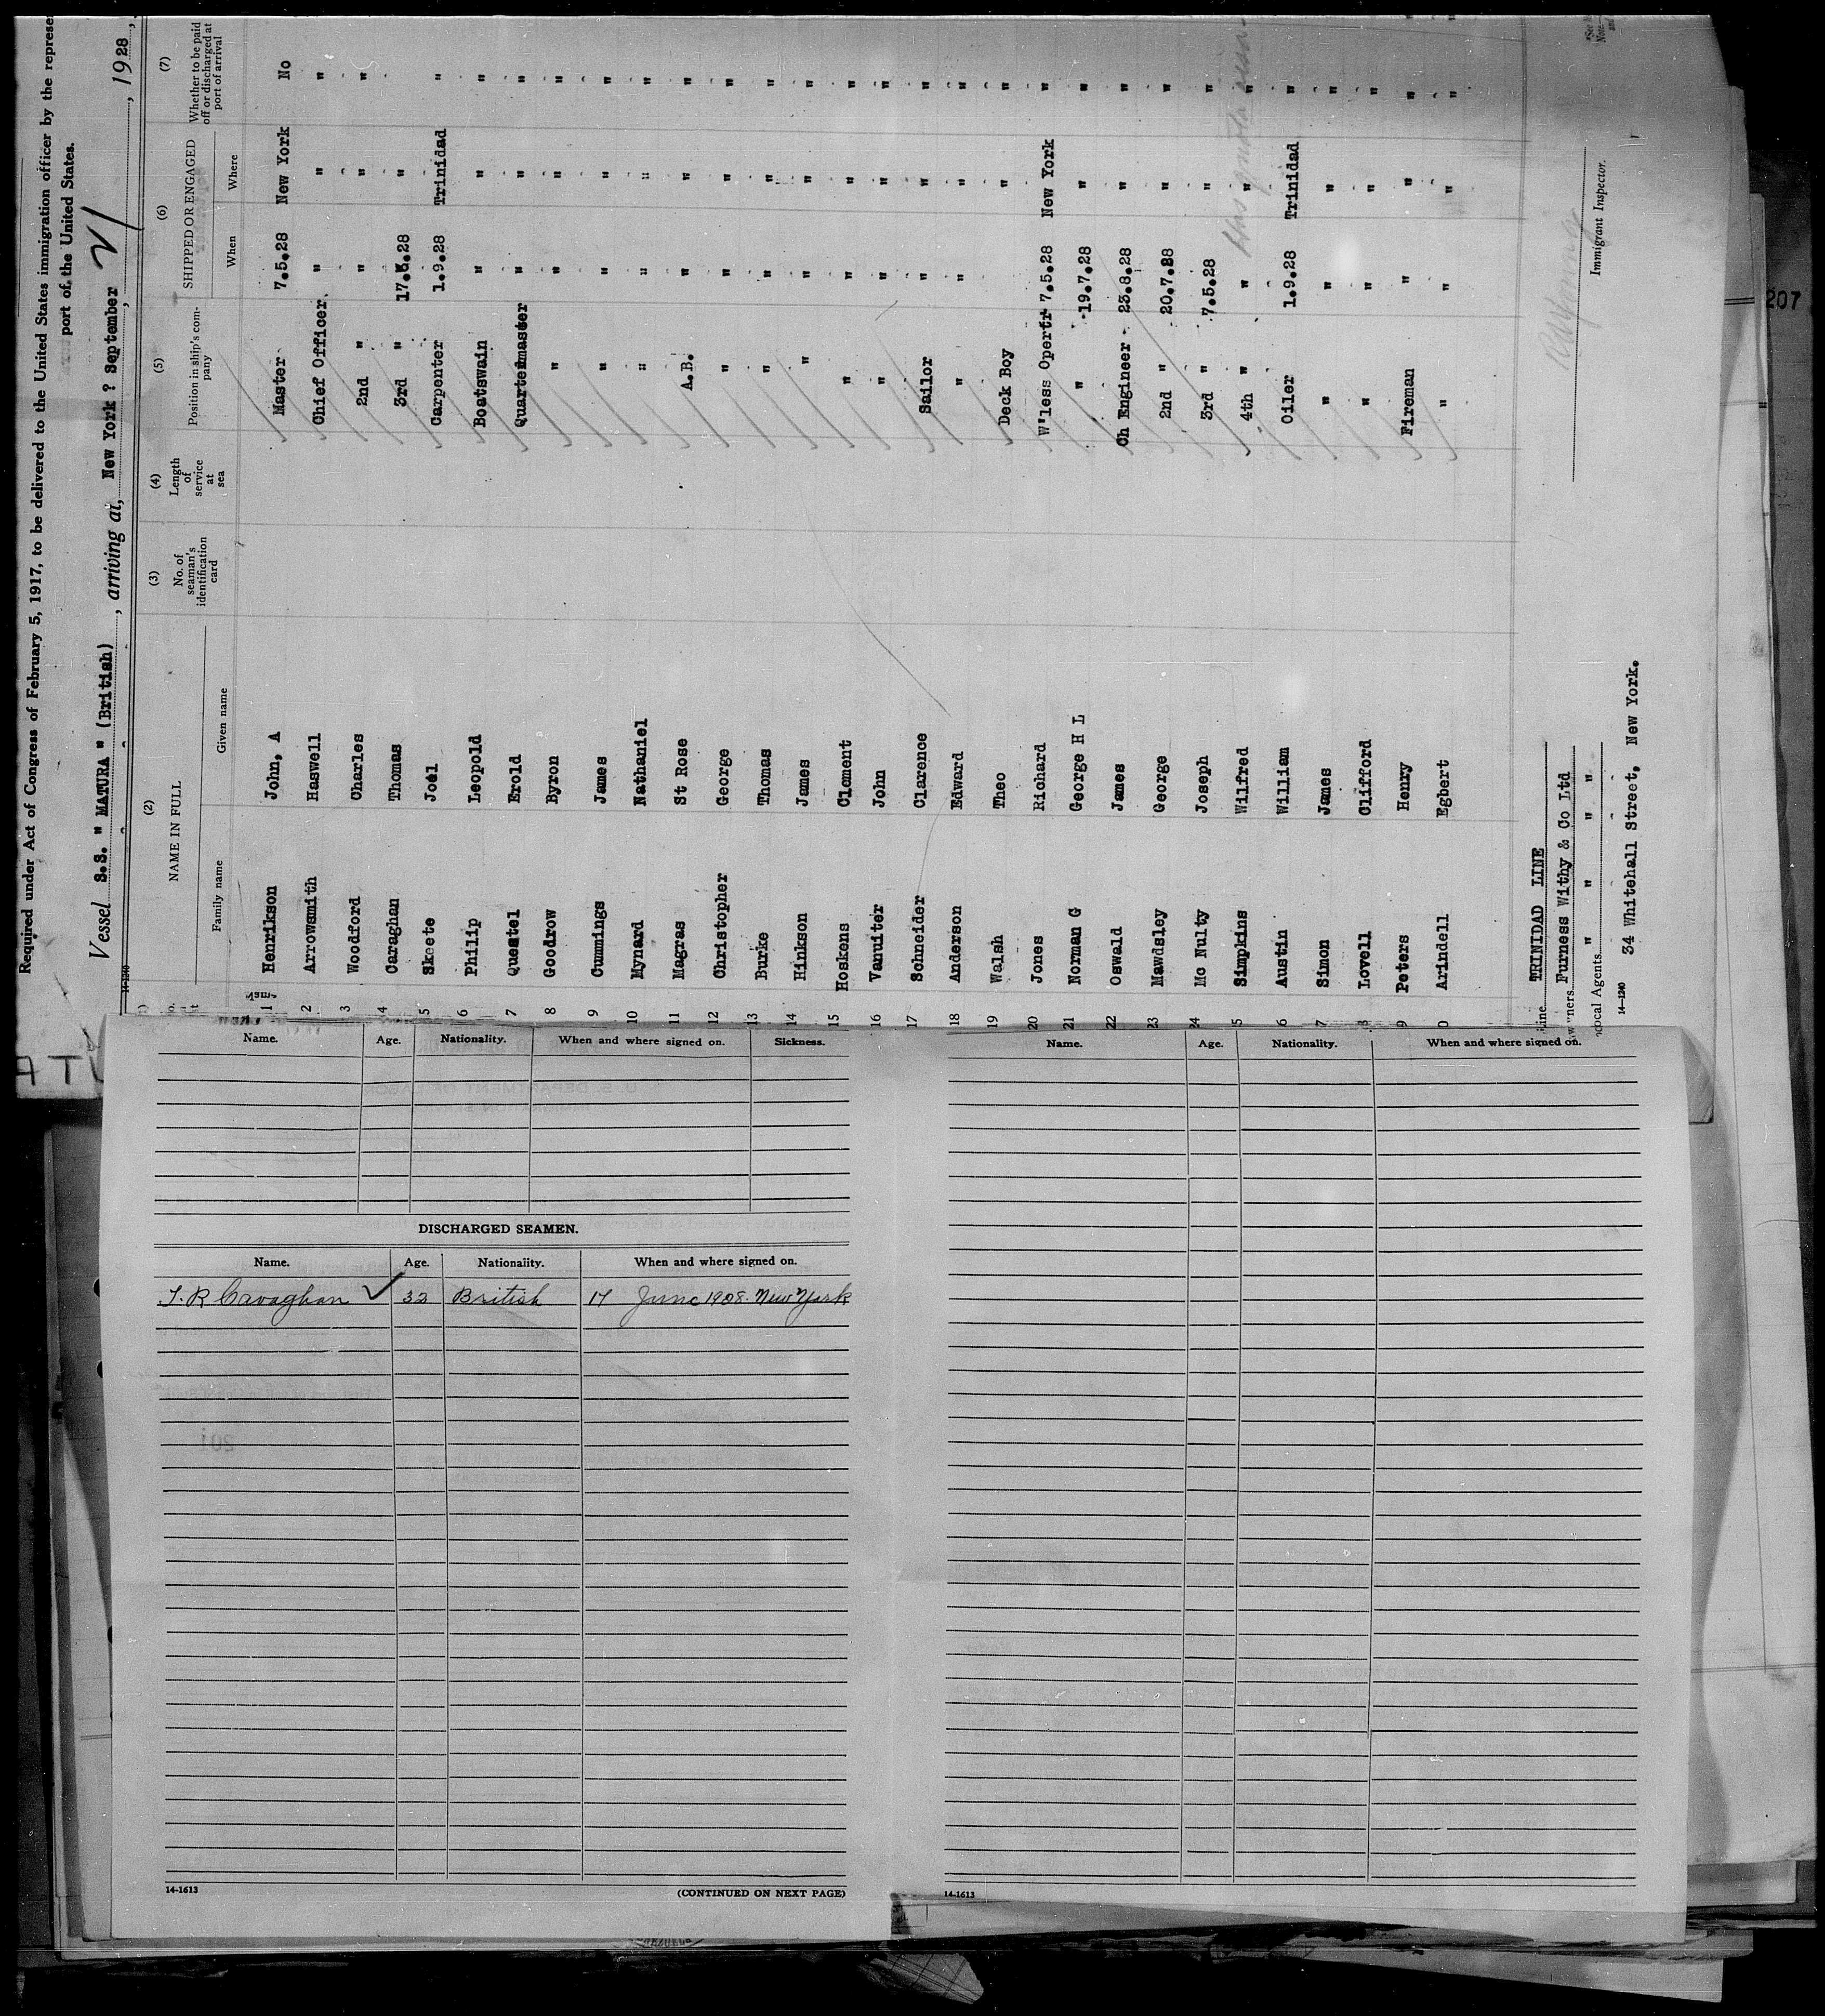 Required under Act of Congress of February 5, 1917, to be delivered to the United States immigration officer by the represe
port of, the United States.
Vessel S.S. " MATURA " (British), arriving at, New York ? September, 1928
(2) (3) (4) (5) (6) (7)
NAME IN FULL No. of seaman's identification card Length of service at sea Position in ship's company SHIPPED OR ENGAGED Whether to be paid off or discharged at port of arrival
Family name Given name When Where
1 Henrikson John, A Master 7.5.28 New York No
2 Arrowsmith Haswell Chief Officer " " "
3 Woodford Charles 2nd " " " "
4 Caraghan Thomas 3rd " 17.6.28 "
5 Skeete Joel Carpenter 1.9.28 Trinidad "
6 Philip Leopold Boatswain " " "
7 Questel Erold Quartermaster " " "
8 Goodrow Byron " " " "
9 Cummings James " " " "
10 Mynard Nathaniel " " " "
11 Magras St Rose A.B. " " "
12 Christopher George " " " "
13 Burke Thomas " " " "
14 Hinkson James " " " "
15 Hoskens Clement " " " "
16 Vanuiter John " " " "
17 Schneider Clarence Sailor " " "
18 Anderson Edward " " " "
19 Walsh Theo Deck Boy " "
20 Jones Richard W'less Opertr 7.5.28 New York "
21 Norman G George H L " 19.7.28 " "
22 Oswald James Ch Engineer 23.8.28 " "
23 Mawdsley George 2nd " 20.7.28 " "
24 Mc Nulty Joseph 3rd " 7.5.28 " "
5 Simpkins Wilfred 4th " " " "
6 Austin William Oiler 1.9.28 Trinidad "
7 Simon James " " " "
8 Lovell Clifford " " " "
9 Peters Henry Fireman " " "
0 Arindell Egbert " " " "
Line TRINIDAD LINE
Owners Furness Withy & Co Ltd
Local Agents " " " "
34 Whitehall Street, New York.
14-1240
Immigrant Inspector.
207
Name. Age. Nationality. When and where signed on. Sickness.
DISCHARGED SEAMEN.
Name. Age. Nationality. When and where signed on.
T. R Cavaghan ✓ 32 British 17 June 1928. New York
14-1613 (CONTINUED ON NEXT PAGE)
Name. Age. Nationality. When and where signed on.
14-1613